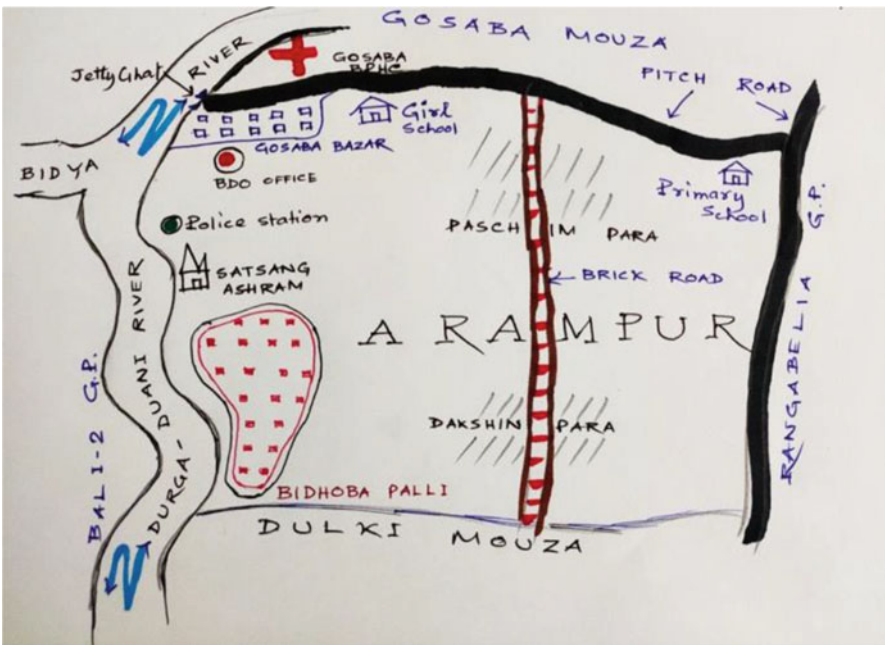 GOSABA MOUZA
Jetty Ghat
RIVER
GOSABA
BPHC
PITCH ROAD
Girl
School
GOSABA BAZAR
BIDYA
BDO OFFICE
Primary
School
G.P.
Police station
PASCHIM PARA
SATSANG
ASHRAM
BRICK ROAD
ARAMPUR
DURGA-DUANI RIVER
BALI-2 G.P.
RANGABELIA
DAKSHIN PARA
BIDHOBA PALLI
DULKI MOUZA